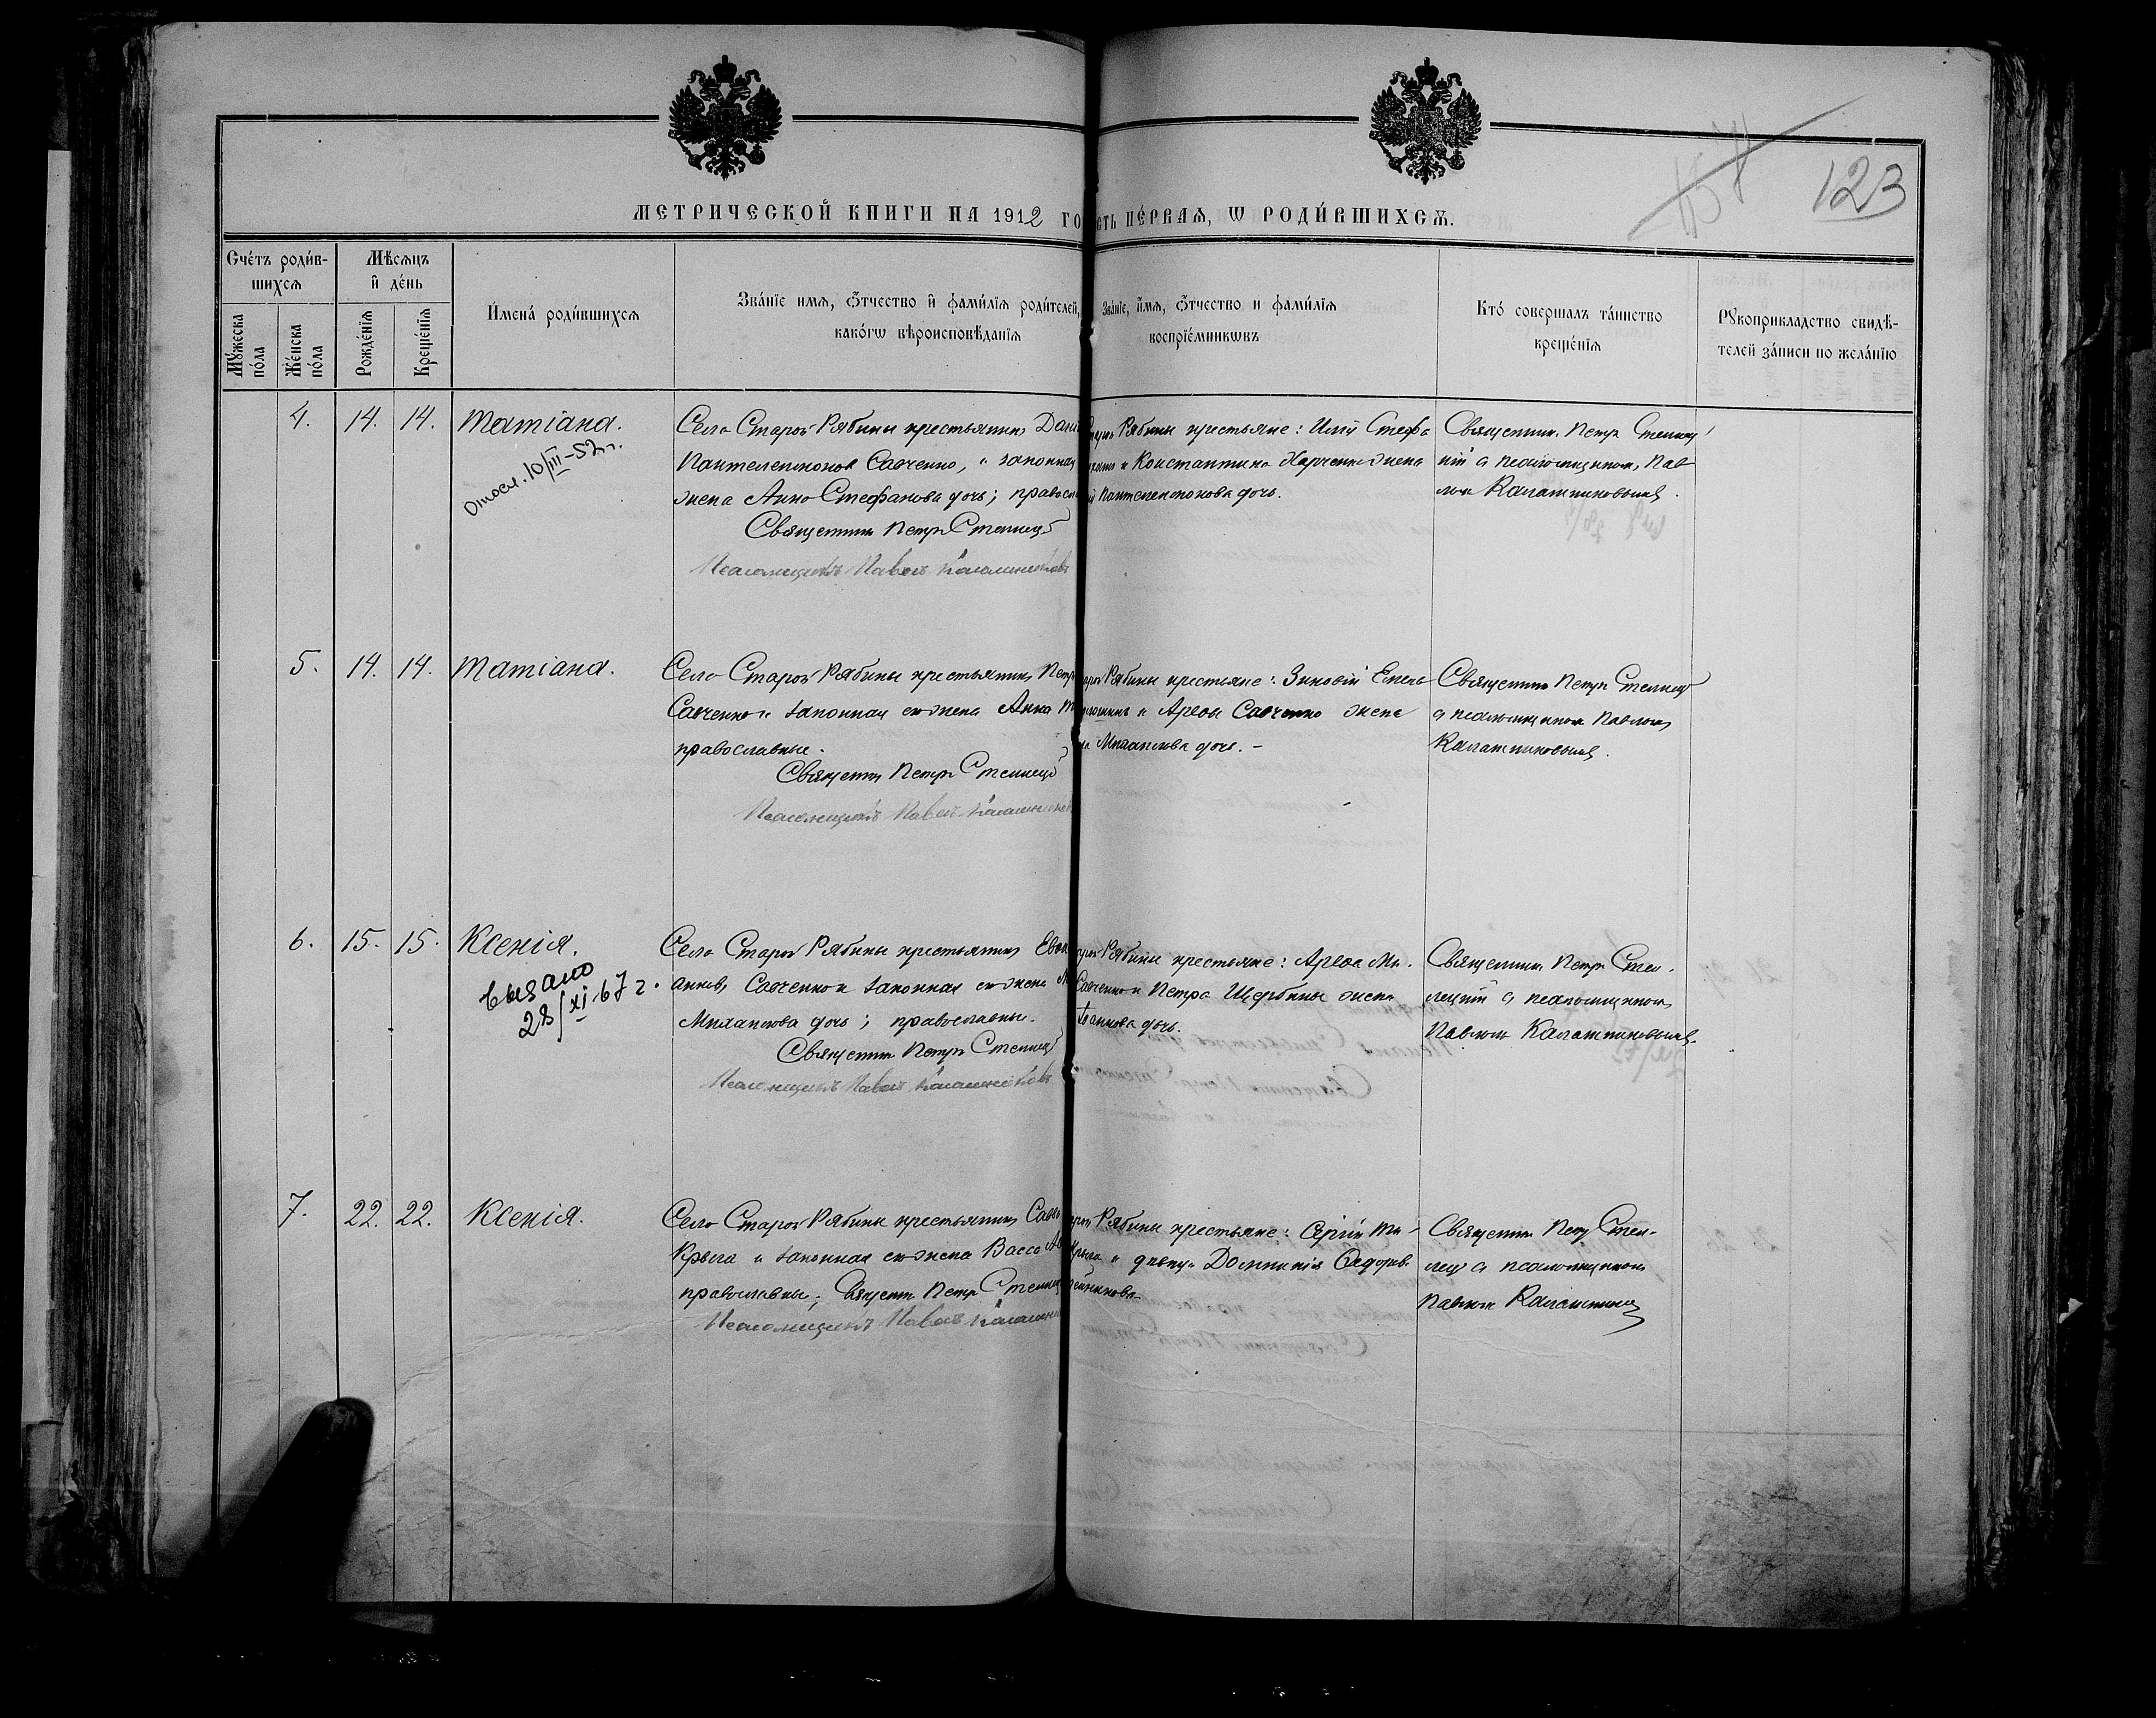 158
123
МЕТРИЧЕСКОЙ КНИГИ НА 1912 ГО
СТЬ ПЕ́РВАѦ, Ѡ РОДИ́ВШИХСѦ.
Счéтъ роди́в-
шихсѧ
Мꙋ́жеска
по́ла
Же́нска
по́ла
Мѣ́сѧцъ
и҆ де́нь
Рожде́нїѧ
Креще́нїѧ
И҆мена̀ роди́вшихсѧ
Зва́нїе имѧ, ѻ҆́тчество и҆ фами́лїѧ роди́телей,
како́гѡ вѣроисповѣ́данїѧ
Зва́нїе, и҆́мѧ, ѻ҆́тчество и фами́лїѧ
воспрїе́мникѡвъ
Кто́ соверша́лъ та́инство
креще́нїѧ
Рꙋкоприкладство свидѣ́-
телей за́писи по жела́нїю
4. 14. 14. Татіана.
10/III-52 г.
Село Старой Рябины крестьянинъ Дани
Пантелеимоновъ Савченко, и законная
жена Анна Стефанова дочь; правосл
Священникъ Петръ
Псаломщикъ Павелъ Калашниковъ
Рябины крестьяне: Стефа
и Константина Харченко жена
Пантелеимонова дочь.
Священник Петръ
и псаломщикомъ Пав
лом Калашниковымъ.
5. 14. 14. Татіана.
Село Старой Рябины крестьянинъ Петр
Савченко и законная его жена Анна
православные.
Священник Петръ
Псаломщикъ Павелъ Калашников
Рябины крестьяне: Зиновій Емель
и Савченко жена
дочь. -
Священникъ Петръ
с псаломщикомъ Павломъ
Калашниковымъ.
6. 15. 15. Ксенія.
выдано
28/XI-67 г.
Село Старой Рябины крестьянинъ
анновъ Савченко и законная его жена М
дочь; православные.
Священник Петръ
Псаломщикъ Павелъ Калашниковъ
Рябины крестьяне: Ми-
Савченко и Петра Щербины жена
Іоаннова дочь.
Священник Петръ
с псаломщикомъ
Павломъ Калашниковымъ.
7. 22. 22. Ксенія.
Село Старой Рябины крестьянинъ Савв
Крыга и законная его жена Васса
православны; Священ Петръ
Псаломщикъ Павелъ Калашни
Рябины крестьяне: Сергій Ти-
Крыга и девица Домникія Федоров
Священник Петр
с псаломщиком
Павлом Калашник